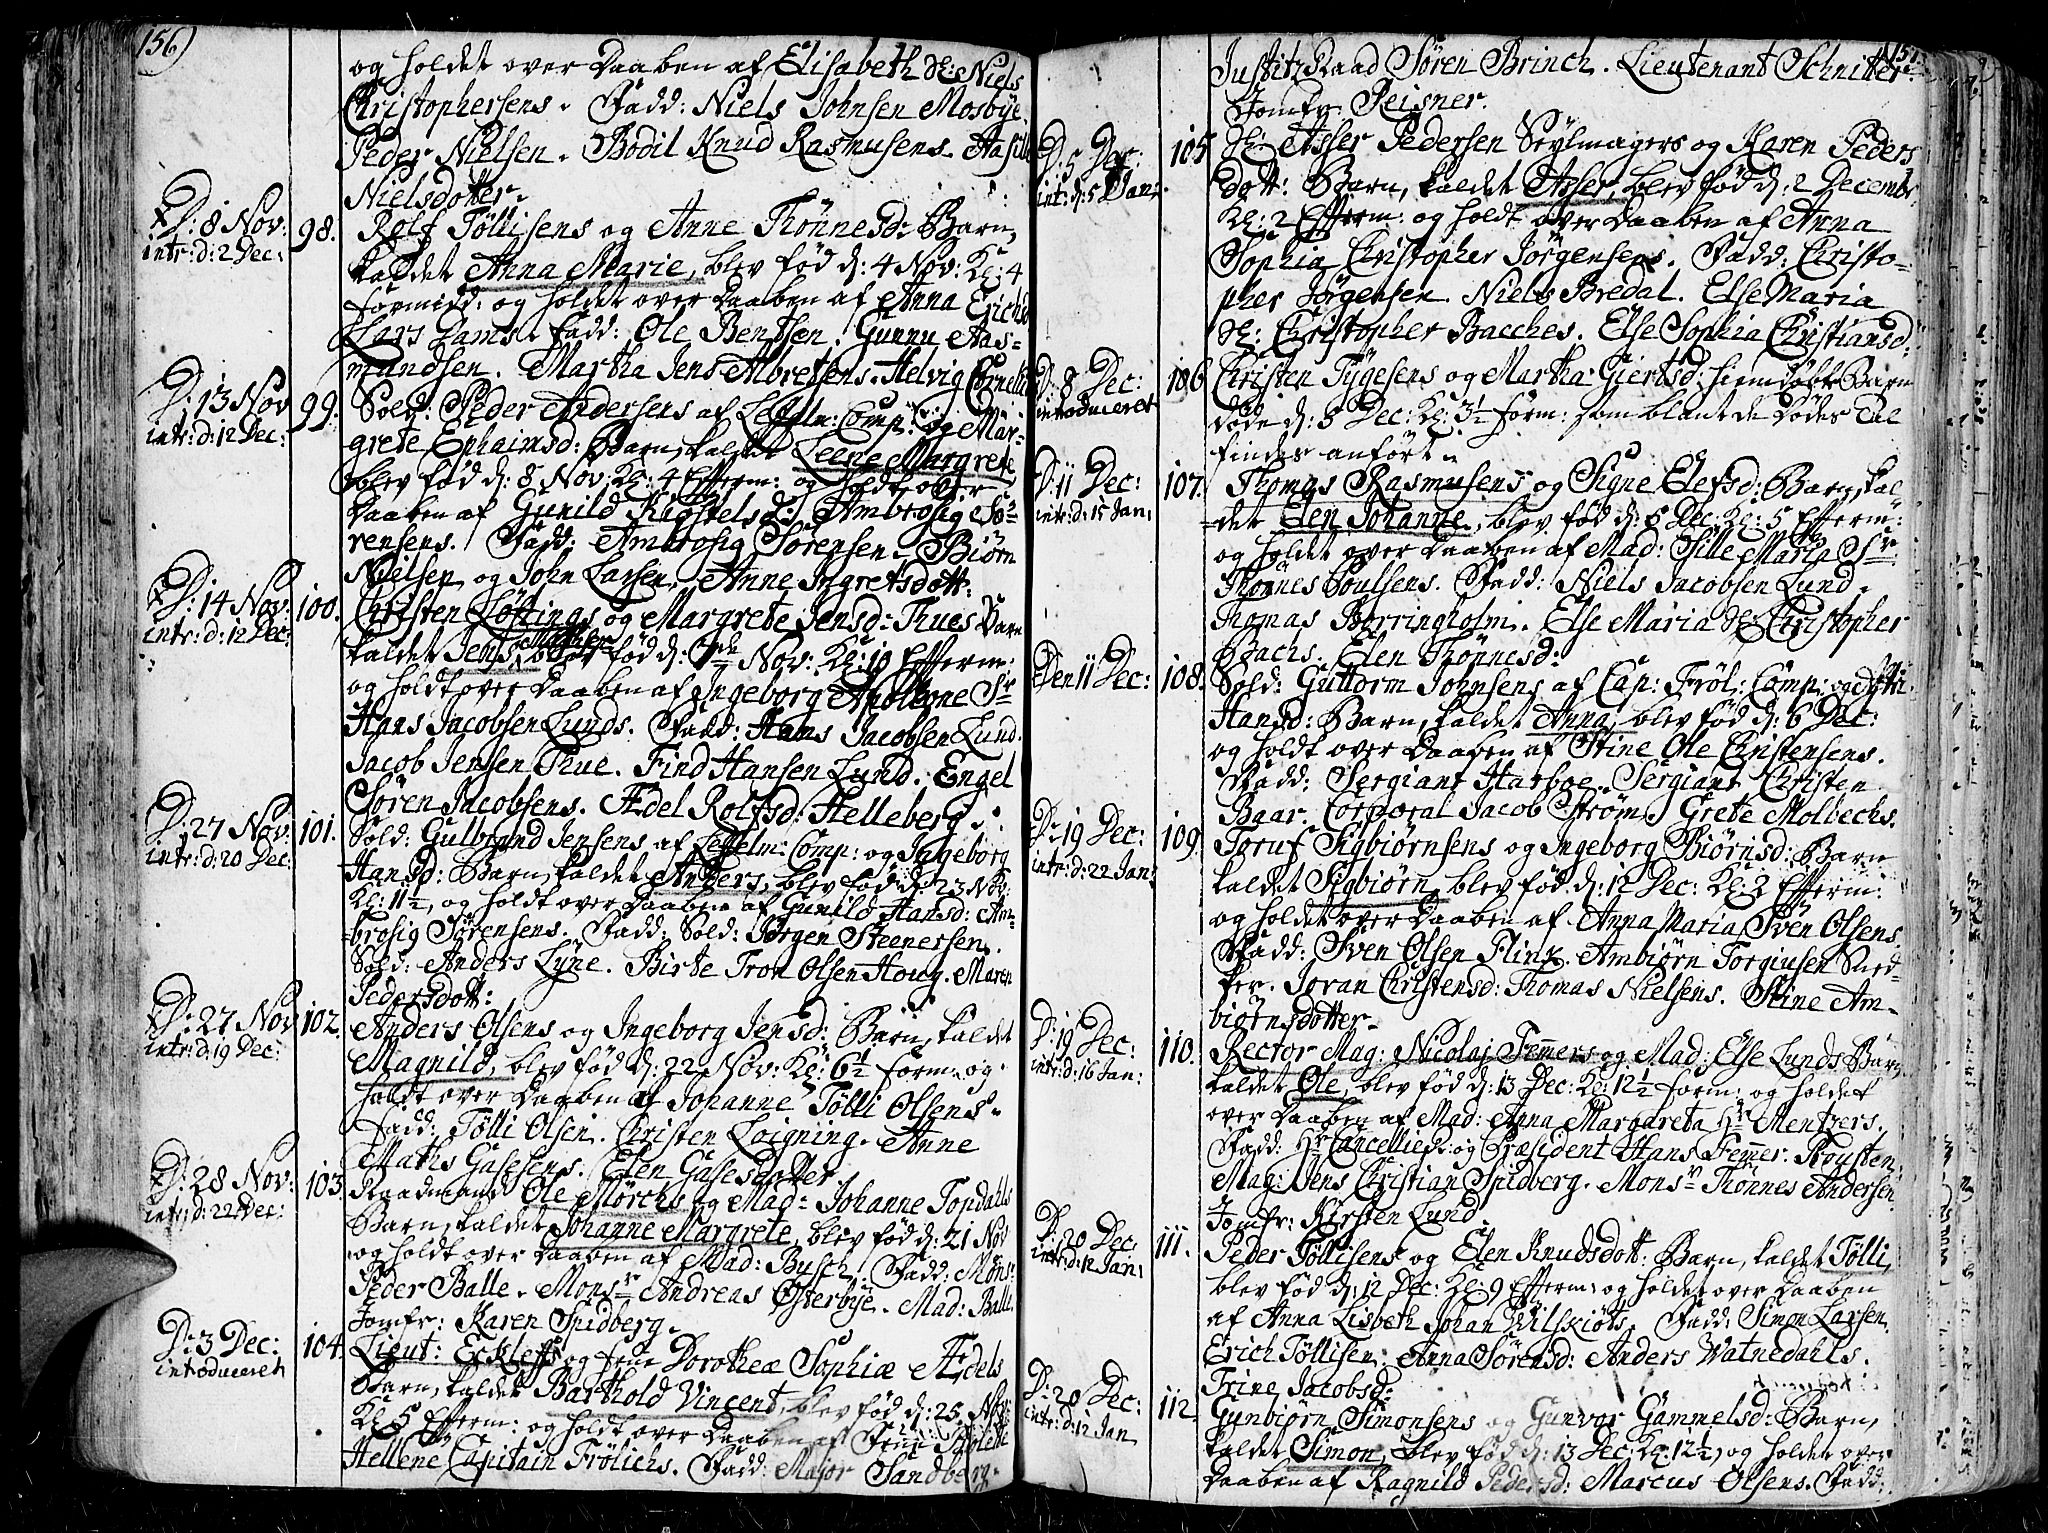 156)
og holdet over Daaben af Elisabeth Sr: Niels
Christophersens. Fadd: Niels Johnsen Mosbye.
Peder Nielsen. Bodil Knud Rasmusens. Aasille
Nielsdotter.
D: 8 Nov: 98. Rolf Töllisens og Anne Thönnesd: Barn,
intr: d: 2 Dec: kaldet Anna Marie, blev fød d: 4 Nov: Kl: 4
formidd: og holdet over Daaben af Anna Erichs
Lars Dams. Fadd: Ole Bentsen. Gunnu Aas-
mundsen. Martha Jens Albretsens. Helvig Cornelius
D: 13 Nov 99. Sold: Peder Andersens af Leffelm: Comp: og Mar-
intr: d: 12 Dec: grete Ephaimsd: Barn, kaldet Leene Margrete
blev fød d: 8 Nov: Kl: 4 Efferm: og holdt over
Daaben af Gunild Kiøstelsd: Ambrosig Sø-
rensens. Fadd: Ambrosig Sørensen. Biørn
Nielsen og John Larsen. Anne Ingretsdott:
D: 14 Nov: 100. Christen Löftings og Margrete Jensd: Thues Barn
intr: d: 12 Dec: kaldet Jens Mathias, blev fød d: 7de Nov: Kl: 10 Efferm:
og holdt over Daaben af Ingeborg Apolone Sr
Hans Jacobsen Lunds. Fadd: Hans Jacobsen Lund.
Jacob Jensen Thue. Find Hansen Lund. Engel
Søren Jacobsens. Ædel Rolfsd: Helleberg.
D: 27 Nov: 101. Sold: Gulbrand Jensens af Leffelm: Comp: og Ingeborg
intr: d: 20 Dec: Hansd: Barn, kaldet Anders, blev fød d: 23 Nov:
Kl: 11½, og holdt over Daaben af Gunild Hansd: Am-
brosig Sørensens. Fadd: Sold: Jørgen Steenersen.
Sold: Anders Lyne. Birte Tron Olsen Houg. Maren
Pedersdott:
D: 27 Nov 102. Anders Olsens og Ingeborg Jensd: Barn, kaldet
intr: d: 19 Dec: Magnild, blev fød d: 22 Nov: Kl: 6½ form: og
holdt over Daaben af Johanne Tölli Olsens.
Fadd: Tölli Olsen. Christen Loigning. Anne
Maths Gasesens. Elen Gasesdotter
D: 28 Nov: 103. Raadmand Ole Mörchs og Mad: Johanne Topdahls
intr: d: 22 Dec: Barn, kaldet Johanne Margrete, blev fød d: 21 Nov
og holdt over Daaben af Mad: Busch. Fadd: Mons:
Peder Balle. Monsr Andreas Østerbye. Mad: Balle.
Jomfr: Karen Spidberg.
D: 3 Dec: 104. Lieut: Eckleffs og Frue Dorotheæ Sophiæ Ædels
introduceret Barn, kaldet Barthold Vincent, blev fød d: 25 Nov:
Kl: 5 Efferm: og holdt over Daaben af Frue Bolette
Hellene Capitain Frölichs. Fadd: Major Sandberg.
157
Justitz Raad Sören Brinch. Lieutenant Schnitter.
Jomfr: Peisner.
D: 5 Dec: 105 Asser Pedersen Seylmagers og Karen Peders
intr: d: 5 Jan: dott: Barn, kaldet Asser, blev fød d: 2 Decembr
Kl: 2 Efferm: og holdt over Daaben af Anna
Sophia Christopher Jörgensens. Fadd: Christo-
pher Jörgensen. Niels Bredal. Else Maria
Sr: Christopher Bacches. Else Sophia Christiansd:
D: 8 Dec: 106 Christen Tygesens og Martha Giertsd: hiemdøbte Barn
introduceret døde d: 5 Dec: Kl: 3½ form: som blant de Dödes Tal
findes anført.
D: 11 Dec: 107. Thomas Rasmusens og Signe Elefsd: Barn, kal-
intr: d: 15 Jan: det Elen Johanne, blev fød d: 8 Dec: Kl: 5 Efferm:
og holdet over Daaben af Mad: Sille Maria Sr
Thönnes Poulsens. Fadd: Niels Jacobsen Lund.
Thomas Borringholm. Else Maria Sr: Christopher
Bachs. Elen Thönnesd:
Den 11 Dec: 108. Sold: Guttorm Johnsens af Cap: Fröl: Comp: og
Hansd: Barn, kaldet Anna, blev fød d: 6 Dec:
og holdt over Daaben af Stine Ole Christensens.
Fadd: Sergiant Harboe. Sergiant Christen
Baar. Corporal Jacob Ström. Grete Molbechs.
D: 19 Dec: 109 Toruf Sigbiørnsens og Ingeborg Biørnsd: Barn
intr: d: 22 Jan: kaldet Sigbiørn, blev fød d: 12 Dec: Kl: 2 Efferm:
og holdet over Daaben af Anna Maria Sven Olsens.
Fadd: Sven Olsen Flinx. Ambiørn Torgiusen Sned-
ker. Joran Christensd: Thomas Nielsens. Stine Am-
biørnsdotter.
D: 19 Dec: 110. Rector Mag: Nicolaj Femmers og Mad: Else Lunds Barn
intr: d: 16 Jan: kaldet Ole, blev fød d: 13 Dec: Kl: 12½ form: og holdet
over Daaben af Mad: Anna Margareta Hr Mentzers.
Fadd: Hr Cancellier: og Præsident Hans Femmer. Prousten
Mag: Jens Christian Spidberg. Monsr Thönnes Andersen
Jomfr: Kirsten Lund
D: 20 Dec: 111. Peder Töllisens og Elen Knudsdott: Barn, kaldet Tölli,
intr: d: 12 Jan: blev fød d: 12 Dec: Kl: 9 Efferm: og holdet over Daaben
af Anna Lisbeth Johan Vilskiöts. Fadd: Simon Larsen.
Erich Töllisen. Anna Sörensd: Anders Watnedahls.
Trine Jacobsd:
D: 20 Dec: 112. Gunbiørn Simonsens og Gunvor Gammelsd: Barn,
intr: d: 12 Jan kaldet Simon, blev fød d: 13 Dec: Kl: 12½, og holdet over
Daaben af Ragnild Pedersd: Marcus Olsens. Fadd: